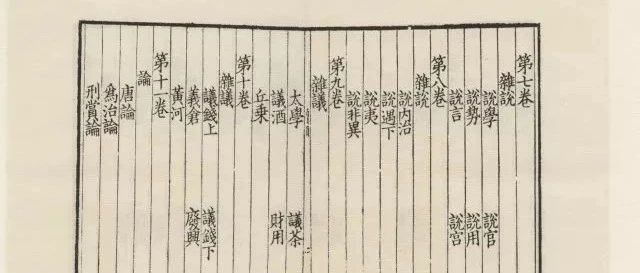 第七卷
雜說
說學 說官
說勢 說用
說言 說宮
第八卷
雜說
說內治
說遇下
說夷
說非異
第九卷
雜議
太學 議茶
議酒 財用
丘乘
第十卷
雜議
議錢上 議錢下
義倉 廢興
黃河
第十一卷
論
唐論
爲治論
刑賞論